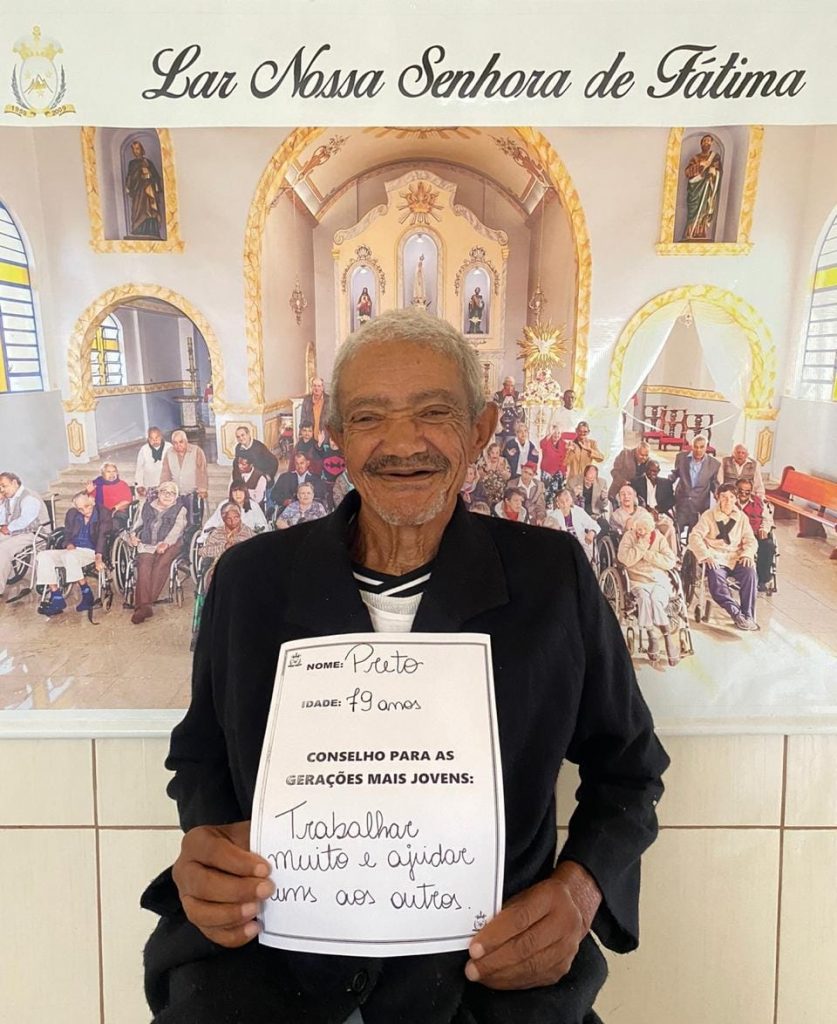 Lar Nossa Senhora de Fátima
1959 2009
NOME: Preto
IDADE: 79 anos
CONSELHO PARA AS
GERAÇÕES MAIS JOVENS:
Trabalhar
muito e ajudar
uns aos outros.